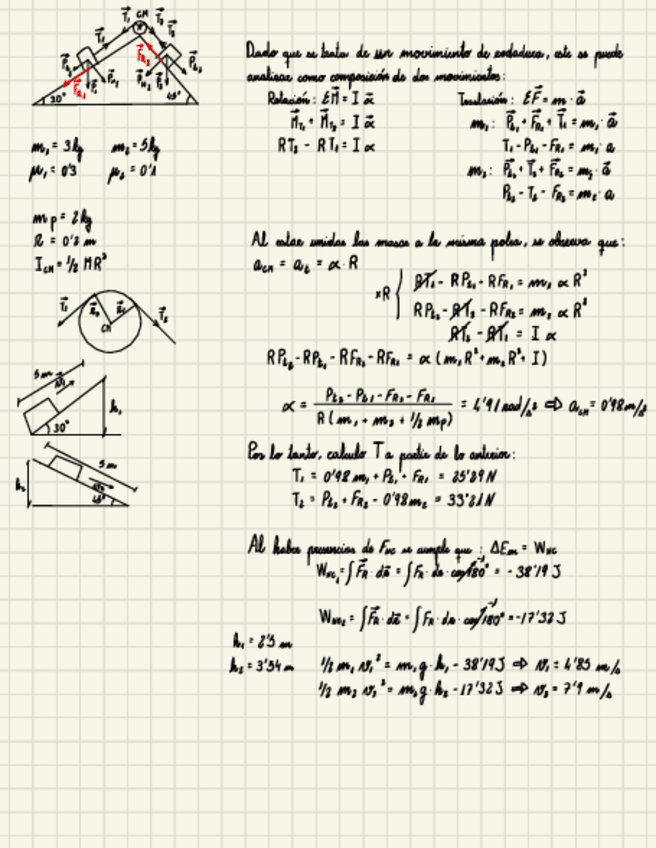 CM
30°
45°
m₁ = 3 kg m₂ = 5 kg
μ₁ = 0'3 μ₂ = 0'1
mp = 2 kg
R = 0'2 m
I_CM = 1/2 MR²
CM
5 m
h₁
30°
5 m
h₂
45°
Dado que se trata de un movimiento de rodadura, este se puede
analizar como composición de dos movimientos:
Rotación: ΣM⃗ = I α⃗
M⃗_T₁ + M⃗_T₂ = I α⃗
RT₂ - RT₁ = I α
Traslación: ΣF⃗ = m · a⃗
m₁: P⃗t₁ + F⃗R₁ + T⃗₁ = m₁ · a⃗
T₁ - Pt₁ - FR₁ = m₁ · a
m₂: P⃗t₂ + T⃗₂ + F⃗R₂ = m₂ · a⃗
Pt₂ - T₂ - FR₂ = m₂ · a
Al estar unidas las masas a la misma polea, se observa que:
a_CM = a_t = α · R
×R { RT₁ - RPt₁ - RFR₁ = m₁ α R²
RPt₂ - RT₂ - RFR₂ = m₂ α R²
RT₂ - RT₁ = I α
RPt₂ - RPt₁ - RFR₁ - RFR₂ = α (m₁R² + m₂R² + I)
α = (Pt₂ - Pt₁ - FR₂ - FR₁) / (R (m₁ + m₂ + 1/2 mp)) = 4'91 rad/s ⇒ a_CM = 0'98 m/s
Por lo tanto, calculo T a partir de lo anterior:
T₁ = 0'98 m₁ + Pt₁ + FR₁ = 25'29 N
T₂ = Pt₂ + FR₂ - 0'98 m₂ = 33'21 N
Al haber presencias de F_NC se cumple que: ΔEm = W_NC
W_NC₁ = ∫ F⃗R · dr⃗ = ∫ FR · dr · cos 180° = - 38'19 J
W_NC₂ = ∫ F⃗R · dr⃗ = ∫ FR · dr · cos 180° = - 17'32 J
h₁ = 2'5 m
h₂ = 3'54 m
1/2 m₁ v₁² = m₁ g · h₁ - 38'19 J ⇒ v₁ = 4'85 m/s
1/2 m₂ v₂² = m₂ g · h₂ - 17'32 J ⇒ v₂ = 7'9 m/s